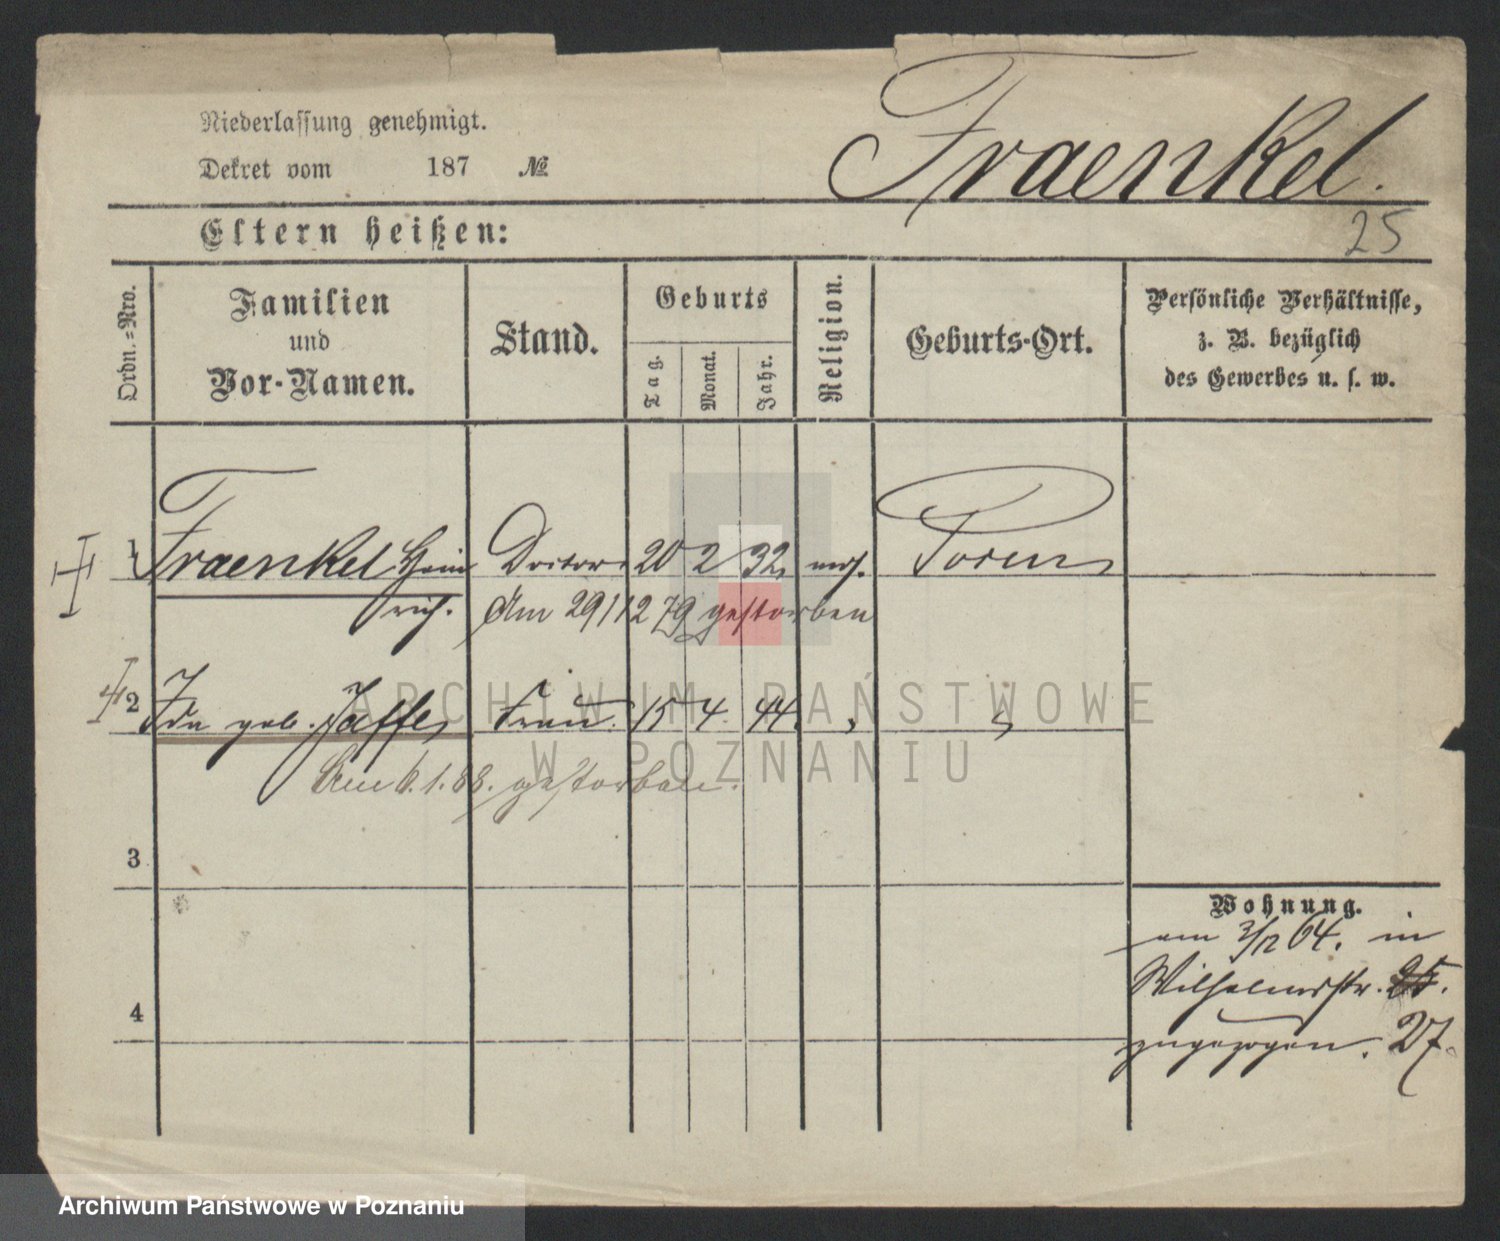 Niederlassung genehmigt.
Dekret vom 187 №
Fraenkel.
25
Eltern heißen:
Ordn.=Nro.
Familien
und
Vor-Namen.
Stand.
Geburts
Tag.
Monat.
Jahr.
Religion.
Geburts-Ort.
Persönliche Verhältnisse,
z. B. bezüglich
des Gewerbes u. s. w.
1 Fraenkel Hein Doctor 20 2 32 mos. Posen
rich. Am 29/12 79 gestorben
2 Ida geb. Jaffe Frau 15 4. 44.
Am 6.1.88. gestorben.
3
Wohnung.
am 3/12 64. in
Wilhelmsstr. 25.
4
zugezogen. 27.
ARCHIWUM PAŃSTWOWE
W POZNANIU
Archiwum Państwowe w Poznaniu